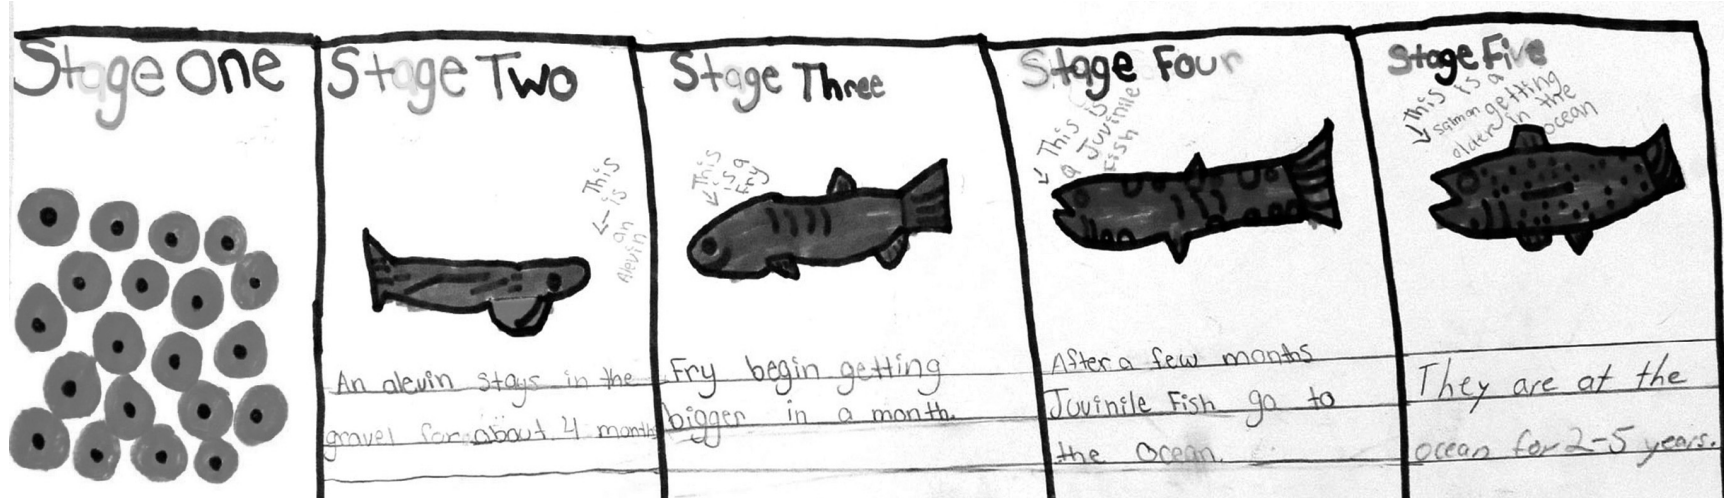 Stage One
Stage Two
← This
is
an
Alevin
An alevin stays in the
gravel for about 4 month
Stage Three
← This
is a
Fry
Fry begin getting
bigger in a month.
Stage Four
← This is
a Juvinile
Fish
After a few months
Juvinile Fish go to
the Ocean.
Stage Five
← This is a
salmon getting
older in the
ocean
They are at the
ocean for 2-5 years.